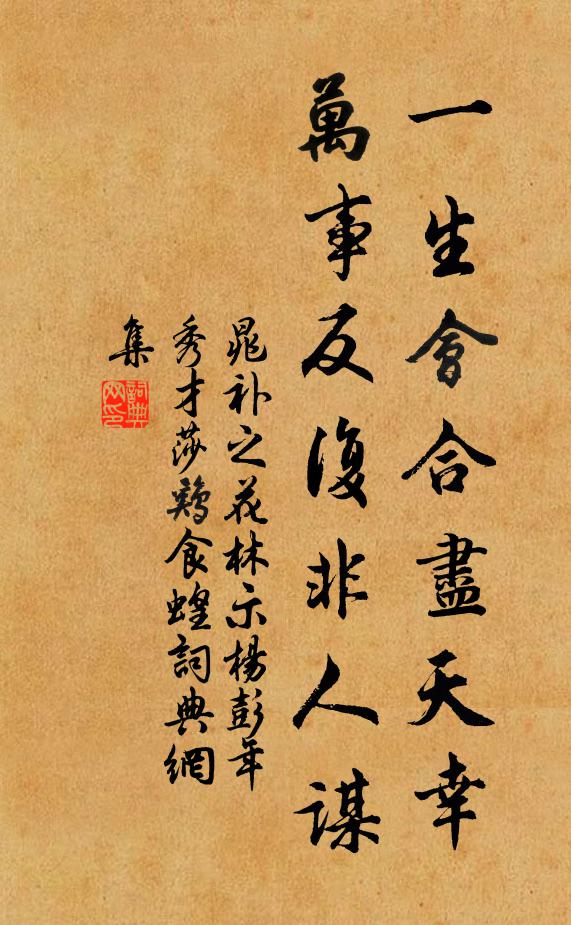 一生會合盡天幸
萬事反復非人謀
晁补之花林示楊彭年
秀才莎鶏食蝗詞典網
集
詞典
网印